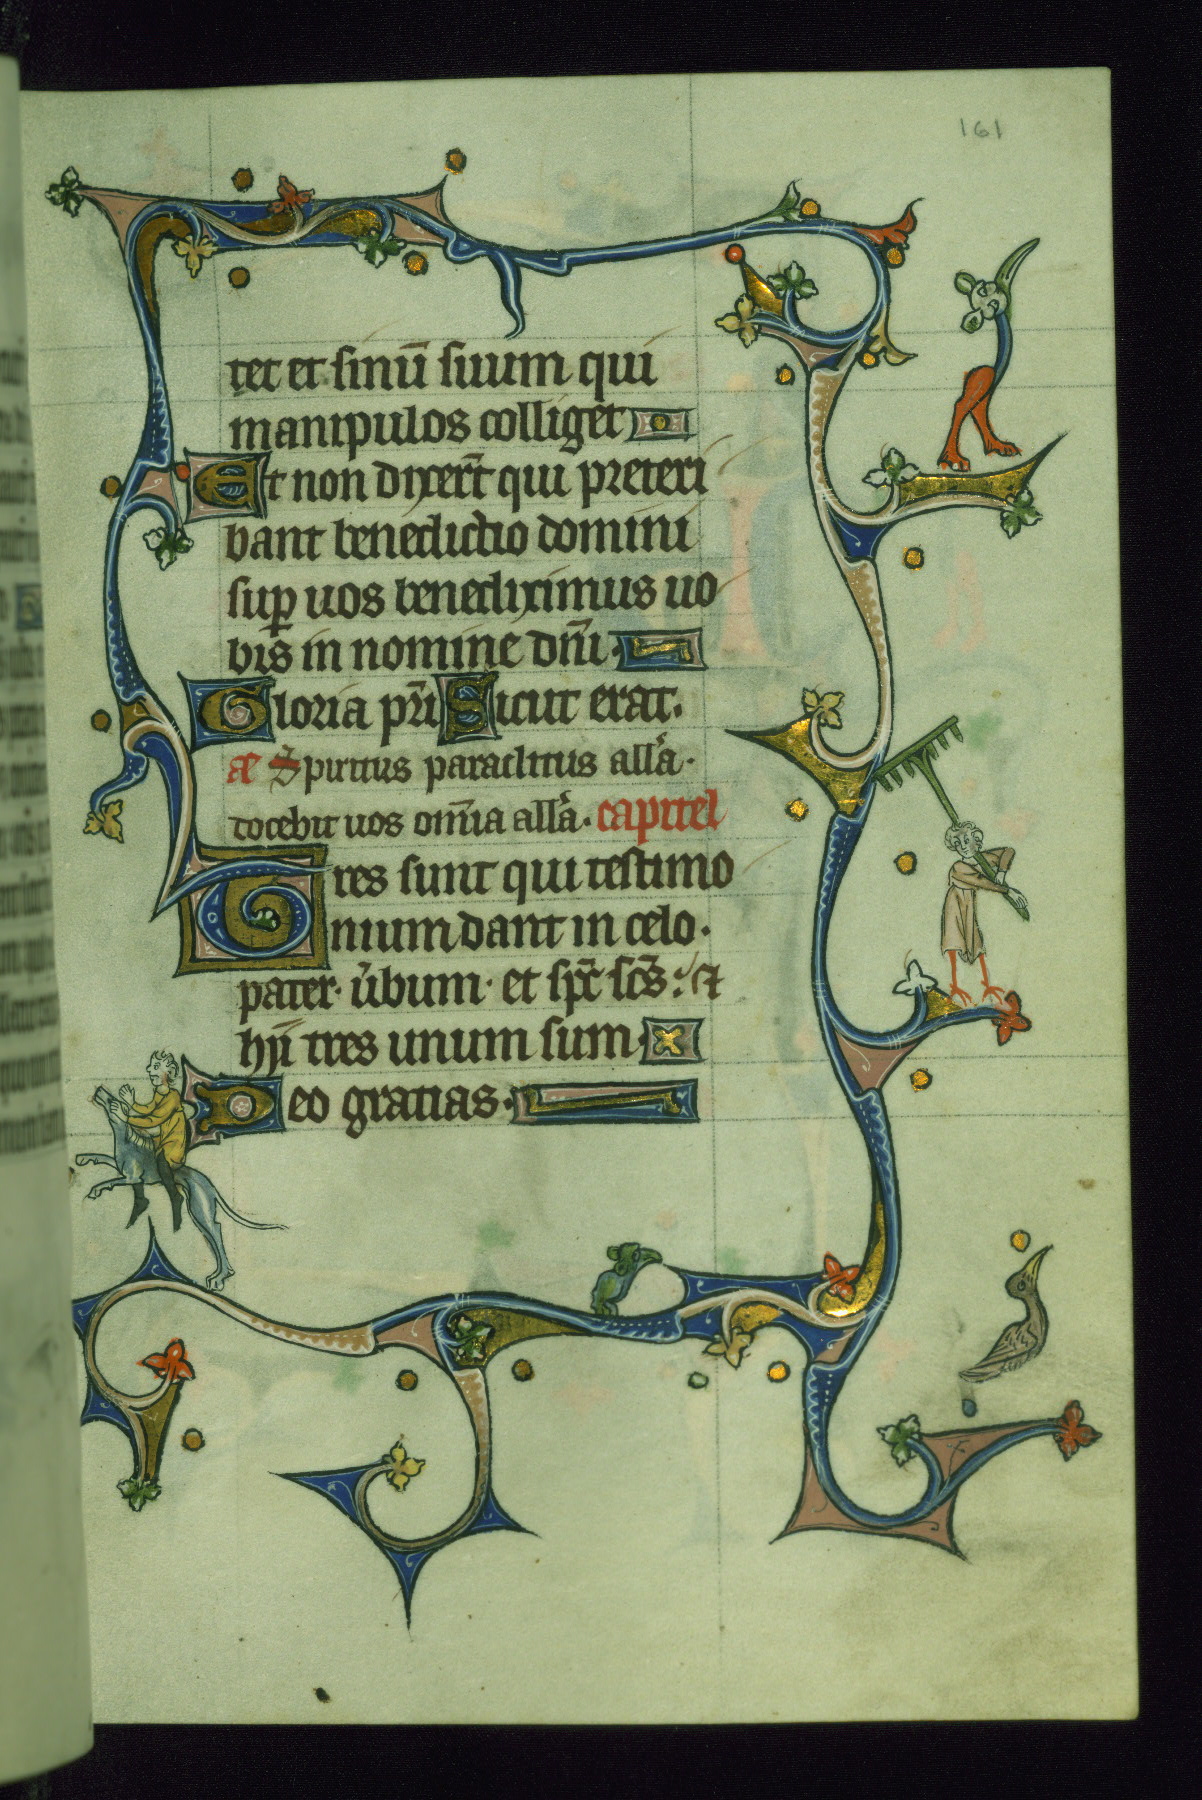 161
tet et sinū suum qui
manipulos colliget
Et non dixer̄t qui preteri
bant benedictio domini
suꝑ uos benediximus uo
bis in nomine dn̄i.
Gloria pr̄i Sicut erat.
ae Spiritus paraclitus all'a.
docebit uos om̄ia all'a. capitel
Tres sunt qui testimo
nium dant in celo.
pater. u̓bum. et sp̄c sc̄s. et
hij tres unum sunt.
Deo gratias.